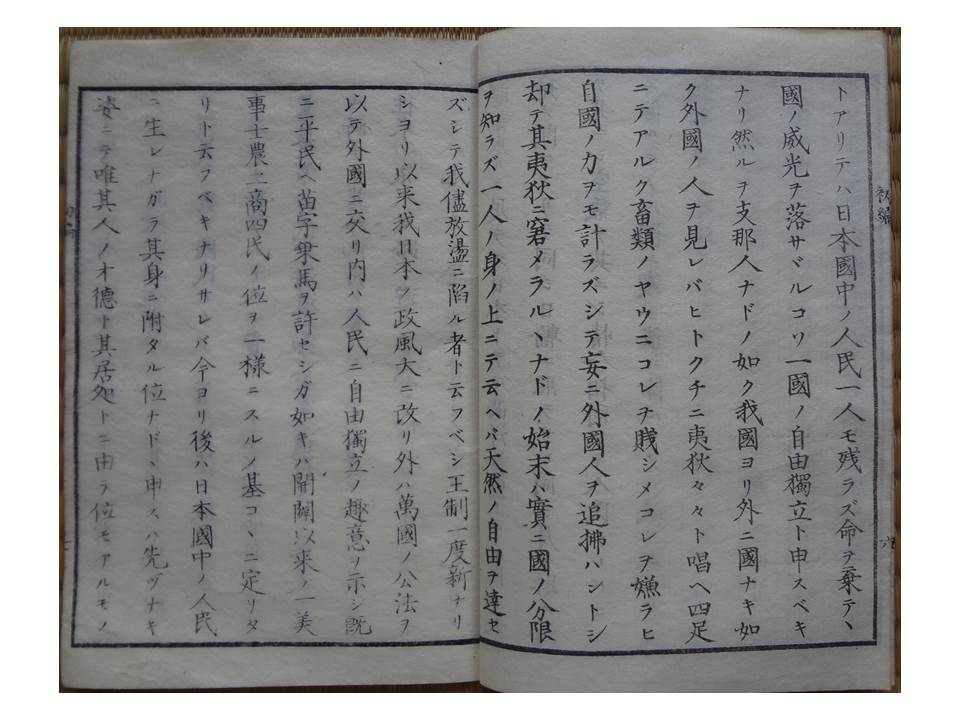 トアリテハ日本國中ノ人民一人モ残ラズ命ヲ棄テヽ
國ノ威光ヲ落サヾルコソ一國ノ自由獨立ト申スベキ
ナリ然ルヲ支那人ナドノ如ク我國ヨリ外ニ國ナキ如
ク外國ノ人ヲ見レバヒトクチニ夷狄々々ト唱ヘ四足
ニテアルク畜類ノヤウニコレヲ賤シメコレヲ嫌ラヒ
自國ノ力ヲモ計ラズシテ妄ニ外國人ヲ追拂ハントシ
却テ其夷狄ニ窘メラルヽナドノ始末ハ實ニ國ノ分限
ヲ知ラズ一人ノ身ノ上ニテ云ヘバ天然ノ自由ヲ達セ
初編
六
ズシテ我儘放盪ニ陷ル者ト云フベシ王制一度新ナリ
シヨリ以来我日本ノ政風大ニ改リ外ハ萬國ノ公法ヲ
以テ外國ニ交リ内ハ人民ニ自由獨立ノ趣意ヲ示シ既
ニ平民ヘ苗字乗馬ヲ許セシガ如キハ開闢以来ノ一美
事士農工商四民ノ位ヲ一様ニスルノ基コヽニ定リタ
リト云フベキナリサレバ今ヨリ後ハ日本國中ノ人民
ニ生レナガラ其身ニ附タル位ナドヽ申スハ先ヅナキ
姿ニテ唯其人ノ才德ト其居処トニ由テ位モアルモノ